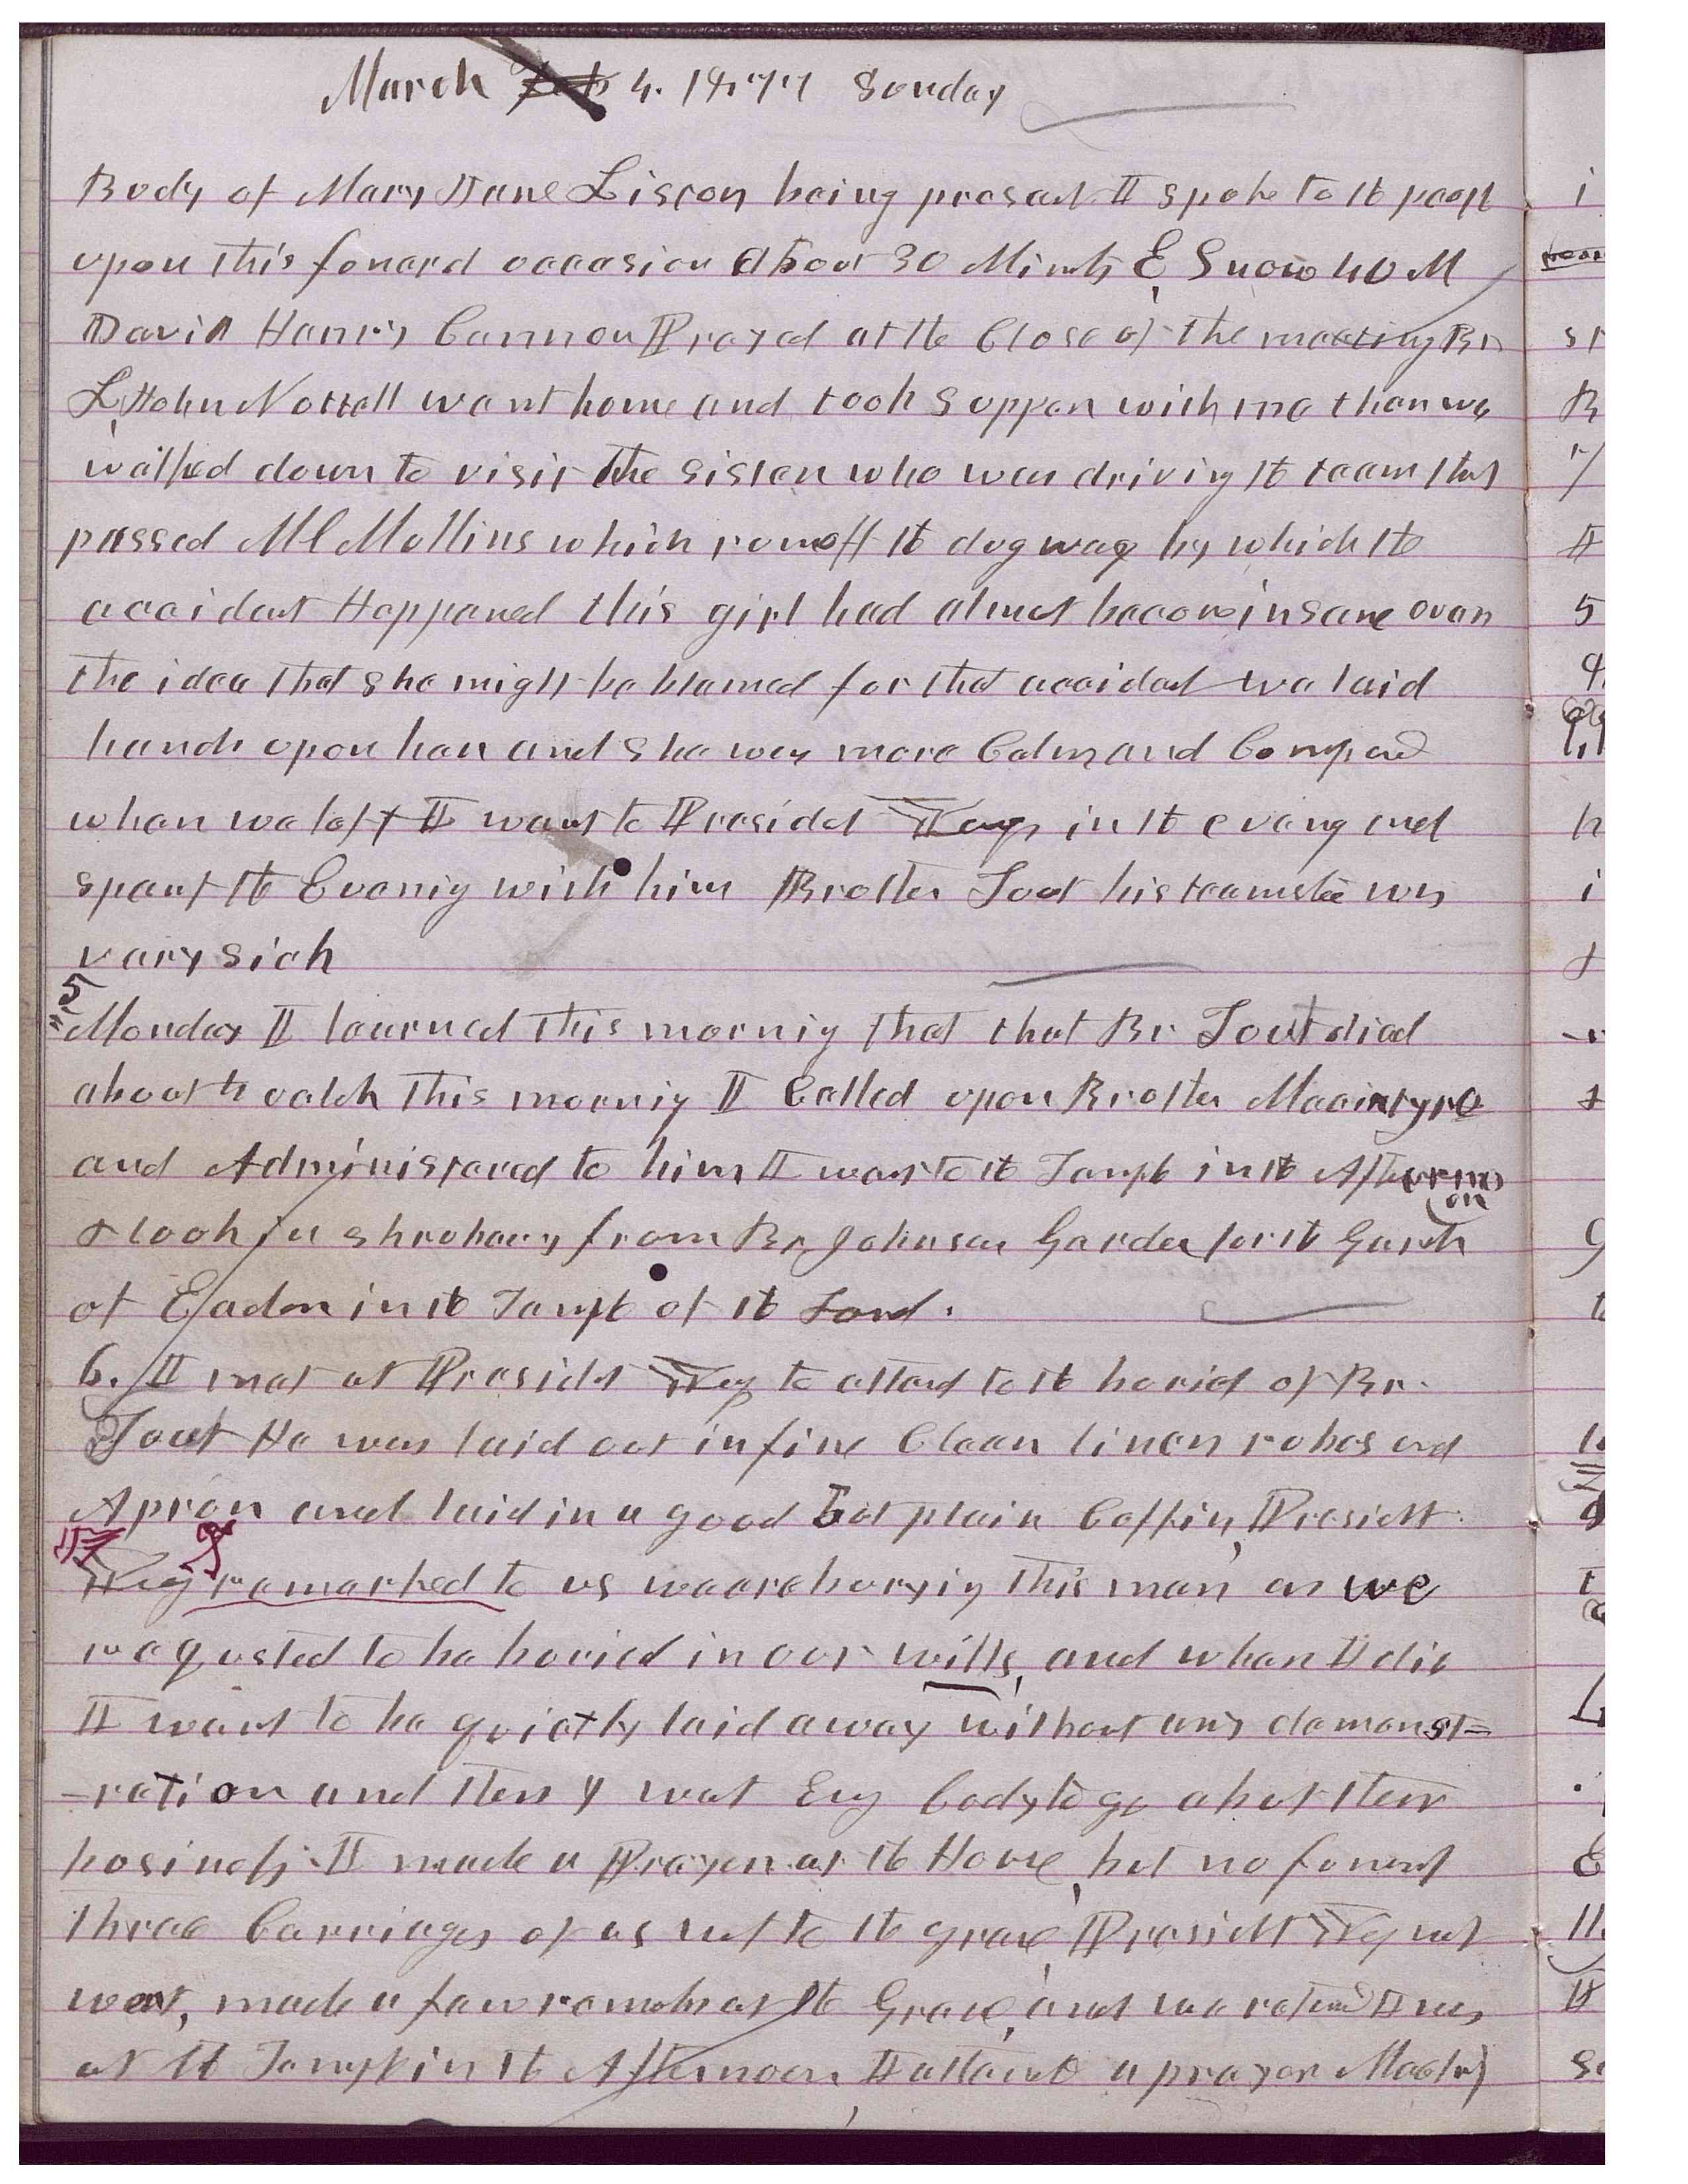 March Feb 4. 1877 Sunday
Body of Mary Jane Liscon being present I spoke to the people
upon this funeral occasion about 30 Minuts E, Snow 40 M
David Henry Cannon Prayed at the Close of the meeting Br
L, John Nuttall went home and took Supper with me then we
walked down to visit the sister who was driving the team that
passed McMullins which run off the dugway by which the
accident Happened this girl had almost become insane over
the idea that she might be blamed for that accident we laid
hands upon her and she was more Calm and Composed
when we left I went to Presidet Youngs in the evening and
spent the Evenig with him Brother Tout his teamster was
very sick
5 Monday I learned this mornig that that Br Tout died
about oclok this mornig I Called upon Brother Macintyre
and Administered to him I went to the Temple in the Afternoon
& took in shrubery from Br Johnson Garden for the Garden
of Eaden in the Temple of the Lord.
6. I met at Presidet Youngs to attend to the burial of Br.
Tout He was laid out in fine Clean linen robes and
Apron and laid in a good but plain Coffin, President
Young remarked to us we are burying this man as we
requsted to be buried in our wills, and when I die
I want to be quietly laid away without any demonst=
-ration and then I want Evry body to go about their
business. I made a Prayer at the House, but no funeral
Three Carriages of us went to the grave, President Young
went, made a few remarks at the Grave, and we returned I was
at the Temple in the Afternoon, I attend a prayer Meeting